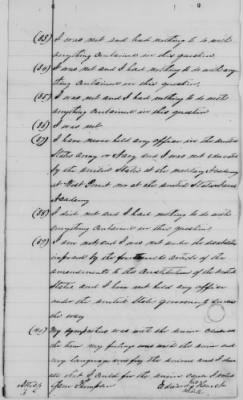 (33) I was not and had nothing to do with
anything contained in this question
(34) I was not and I had nothing to do with any
thing contained in this question
(35) I was not and I had nothing to do with
anything contained in this question
(36) I was not
(37) I have never held any office in the United
States Army or Navy and I was not educated
by the United States at the military Academy
at West Point nor at the United States Naval
Academy
(38) I did not and I had nothing to do with
anything contained in this question
(39) I am not and I was not under the disabilities
imposed by the fourteenth article of the
amendments to the Constitution of the United
States and I have not held any office
under the United States government since
the war
My sympathies was with the union cause
my feelings was and the union and
my language and the union and I
that I could for the union cause I
Edward
mark